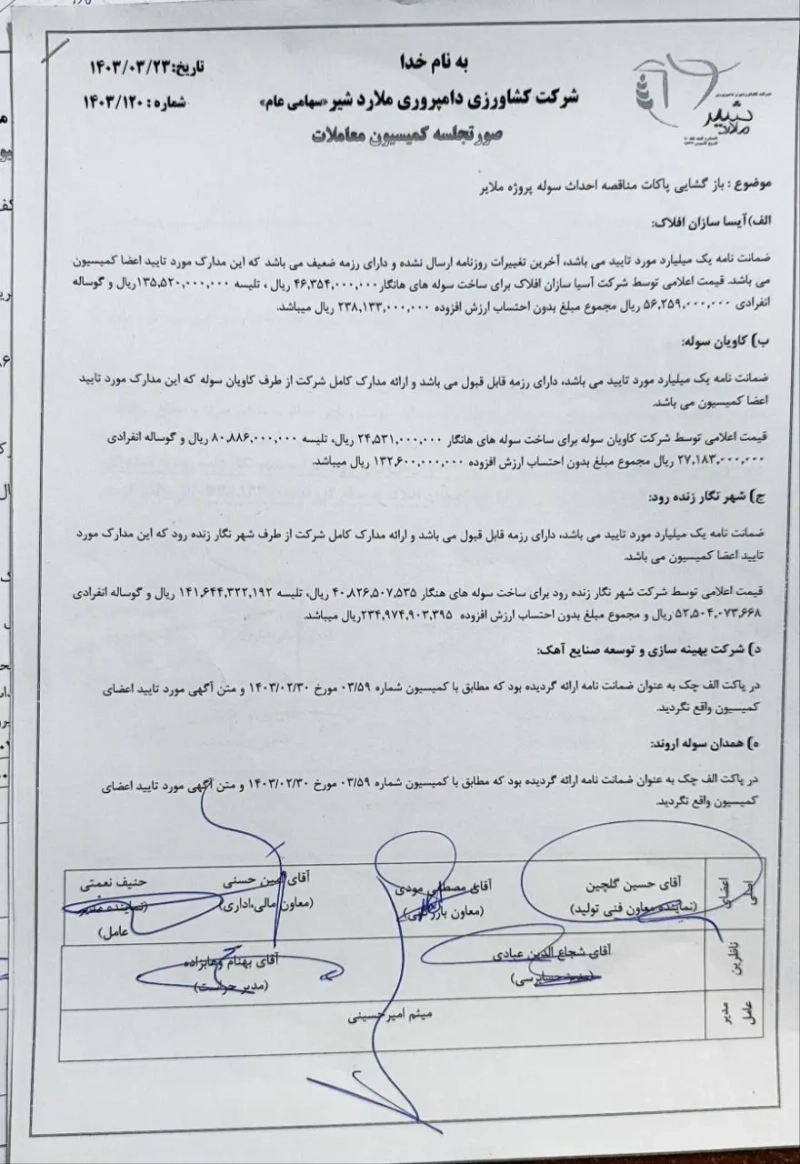 به نام خدا
تاریخ:۱۴۰۳/۰۳/۲۳
شرکت کشاورزی دامپروری ملارد شیر «سهامی عام»
شماره : ۱۴۰۳/۱۲۰
صورتجلسه کمیسیون معاملات
شیر
ملارد
موضوع : باز گشایی پاکات مناقصه احداث سوله پروژه ملایر
الف) آیسا سازان افلاک:
ضمانت نامه یک میلیارد مورد تایید می باشد، آخرین تغییرات روزنامه ارسال نشده و دارای رزمه ضعیف می باشد که این مدارک مورد تایید اعضا کمیسیون
می باشد. قیمت اعلامی توسط شرکت آسیا سازان افلاک برای ساخت سوله های هانگار ۴۶,۳۵۴,۰۰۰,۰۰۰ ریال ، تلیسه ۱۳۵,۵۲۰,۰۰۰,۰۰۰ریال و گوساله
انفرادی ۵۶,۲۵۹,۰۰۰,۰۰۰ ریال مجموع مبلغ بدون احتساب ارزش افزوده ۲۳۸,۱۳۳,۰۰۰,۰۰۰ ریال میباشد.
ب) کاویان سوله:
ضمانت نامه یک میلیارد مورد تایید می باشد، دارای رزمه قابل قبول می باشد و ارائه مدارک کامل شرکت از طرف کاویان سوله که این مدارک مورد تایید
اعضا کمیسیون می باشد.
قیمت اعلامی توسط شرکت کاویان سوله برای ساخت سوله های هانگار ۲۴,۵۳۱,۰۰۰,۰۰۰ ریال، تلیسه ۸۰,۸۸۶,۰۰۰,۰۰۰ ریال و گوساله انفرادی
۲۷,۱۸۳,۰۰۰,۰۰۰ ریال مجموع مبلغ بدون احتساب ارزش افزوده ۱۳۲,۶۰۰,۰۰۰,۰۰۰ ریال میباشد.
ج) شهر نگار زنده رود:
ضمانت نامه یک میلیارد مورد تایید می باشد، دارای رزمه قابل قبول می باشد و ارائه مدارک کامل شرکت از طرف شهر نگار زنده رود که این مدارک مورد
تایید اعضا کمیسیون می باشد.
قیمت اعلامی توسط شرکت شهر نگار زنده رود برای ساخت سوله های هنگار ۴۰,۸۲۶,۵۰۷,۵۳۵ ریال، تلیسه ۱۴۱,۶۴۴,۳۲۲,۱۹۲ ریال و گوساله انفرادی
۵۲,۵۰۴,۰۷۳,۶۶۸ ریال و مجموع مبلغ بدون احتساب ارزش افزوده ۲۳۴,۹۷۴,۹۰۳,۳۹۵ریال میباشد.
د) شرکت بهینه سازی و توسعه صنایع آهک:
در پاکت الف چک به عنوان ضمانت نامه ارائه گردیده بود که مطابق با کمیسیون شماره ۰۳/۵۹ مورخ ۱۴۰۳/۰۲/۳۰ و متن آگهی مورد تایید اعضای
کمیسیون واقع نگردید.
ه) همدان سوله اروند:
در پاکت الف چک به عنوان ضمانت نامه ارائه گردیده بود که مطابق با کمیسیون شماره ۰۳/۵۹ مورخ ۱۴۰۳/۰۲/۳۰ و متن آگهی مورد تایید اعضای
کمیسیون واقع نگردید.
اعضای
اصلی
آقای حسین گلچین
(نماینده معاون فنی تولید)
آقای مصطفی مودی
(معاون بازرگانی)
آقای امین حسنی
(معاون مالی،اداری)
حنیف نعمتی
(نماینده مدیر
عامل)
ناظرین
آقای شجاع الدین عبادی
(مدیر حسابرسی)
آقای بهنام وهابزاده
(مدیر حراست)
مدیر
عامل
میثم امیرحسینی